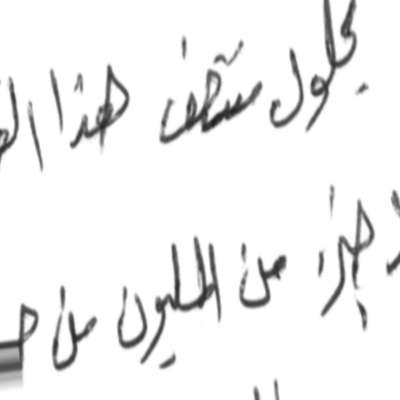 بحلول منتصف هذا
جزء من المليون من